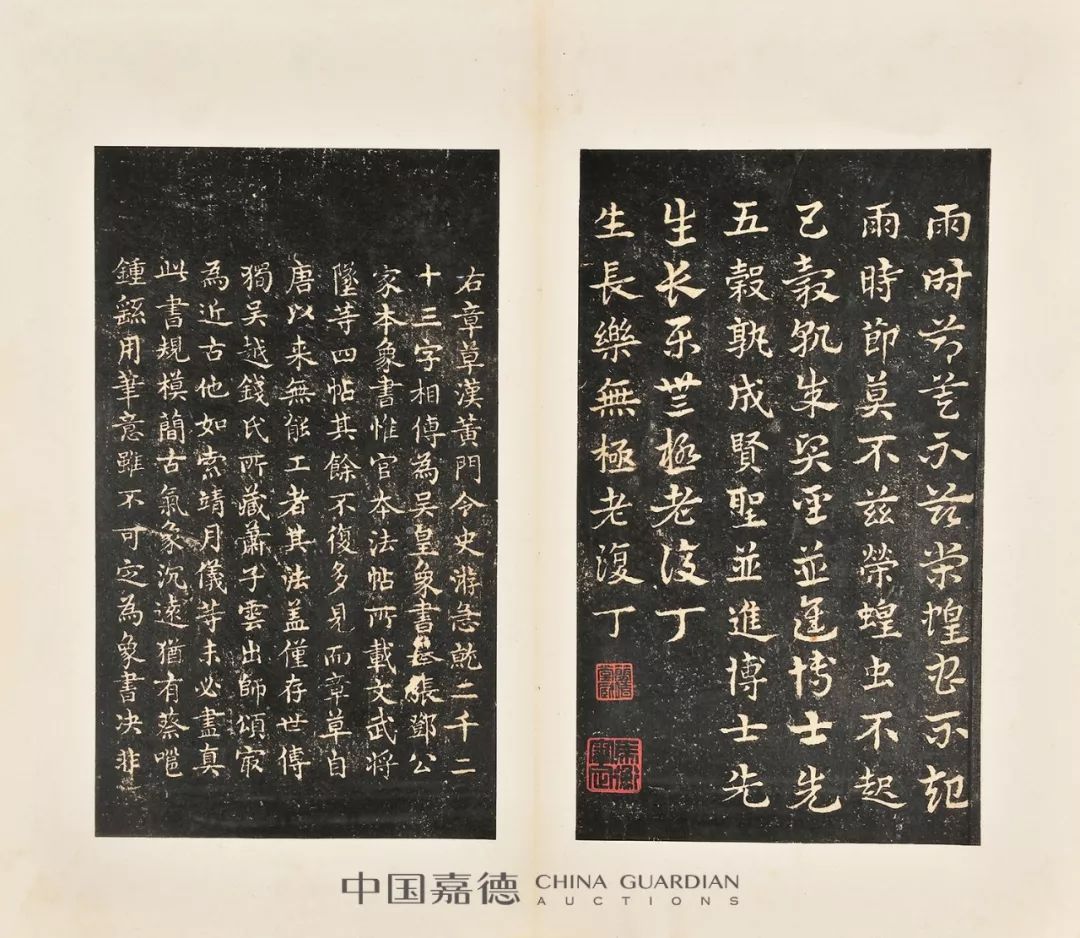 雨時節莫不兹荣蝗虫不起
雨時節莫不兹榮蝗虫不起
五穀孰成賢聖並進博士先
五穀孰成賢聖並進博士先
生长乐無極老復丁
生長樂無極老復丁
右章草漢黄門令史游急就二千二
十三字相傳為吴皇象書張鄧公
家本象書惟官本法帖所載文武將
墜等四帖其餘不復多見而章草自
唐以来無能工者其法盖僅存世傳
獨吴越錢氏所藏蕭子雲出師頌冣
為近古他如索靖月儀等未必盡真
此書規模簡古氣象沉遠猶有蔡邕
鍾繇用筆意雖不可定為象書决非
中国嘉德 CHINA GUARDIAN
AUCTIONS